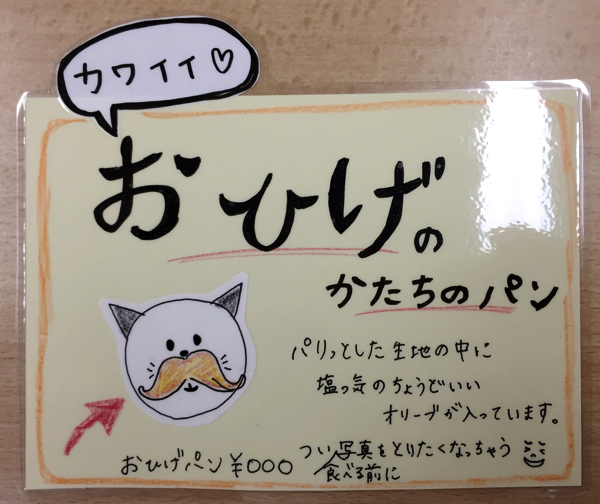 カワイイ♡
おひげの
かたちのパン
パリっとした生地の中に
塩っ気のちょうどいい
オリーブが入っています。
つい食べる前に写真をとりたくなっちゃう
おひげパン ¥000